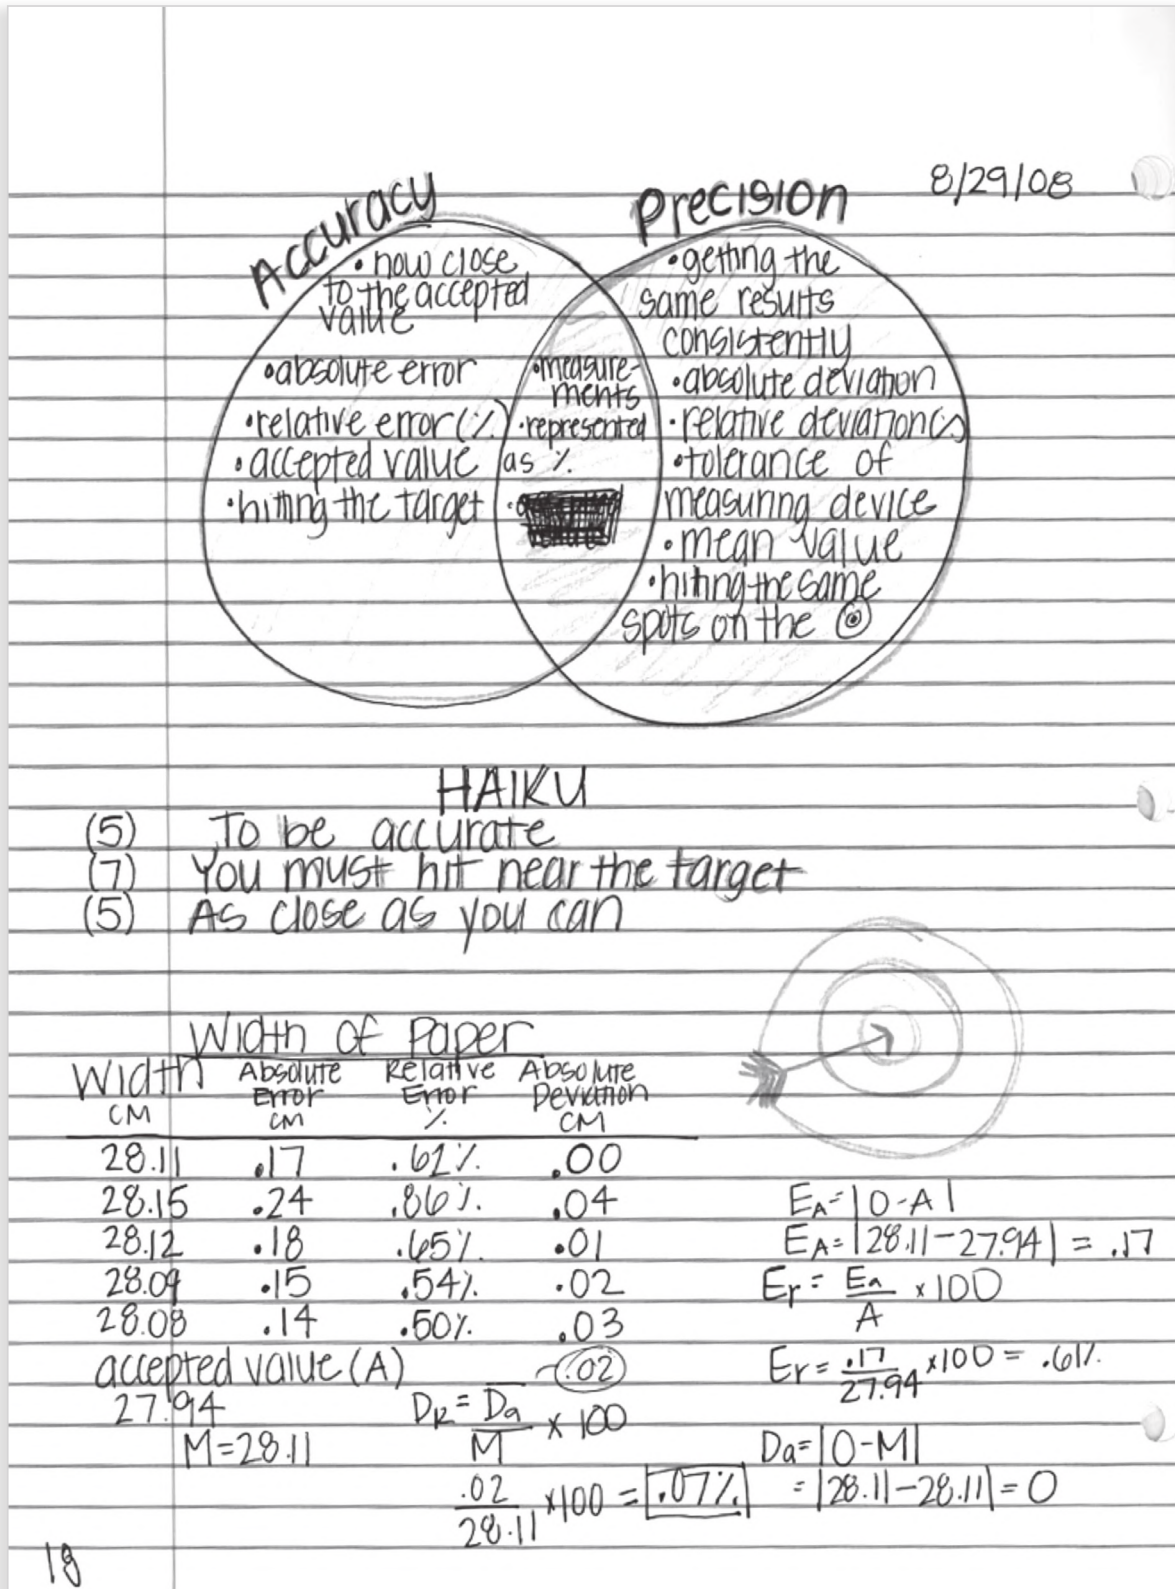 8/29/08
Accuracy
• how close
to the accepted
value
• absolute error
• relative error (%)
• accepted value
• hitting the target
• measure-
ments
• represented
as %
Precision
• getting the
same results
consistently
• absolute deviation
• relative deviation (%)
• tolerance of
measuring device
• mean value
• hitting the same
spots on the
HAIKU
(5) To be accurate
(7) You must hit near the target
(5) As close as you can
Width of Paper
Width CM Absolute Error CM Relative Error % Absolute Deviation CM
28.11 .17 .61% .00
28.15 .24 .86% .04
28.12 .18 .65% .01
28.09 .15 .54% .02
28.08 .14 .50% .03
accepted value (A) .02
27.94
M=28.11
DR = Da/M × 100
.02/28.11 × 100 = .07%
EA = |O-A|
EA = |28.11-27.94| = .17
Er = Ea/A × 100
Er = .17/27.94 × 100 = .61%
Da = |O-M|
= |28.11-28.11| = 0
18